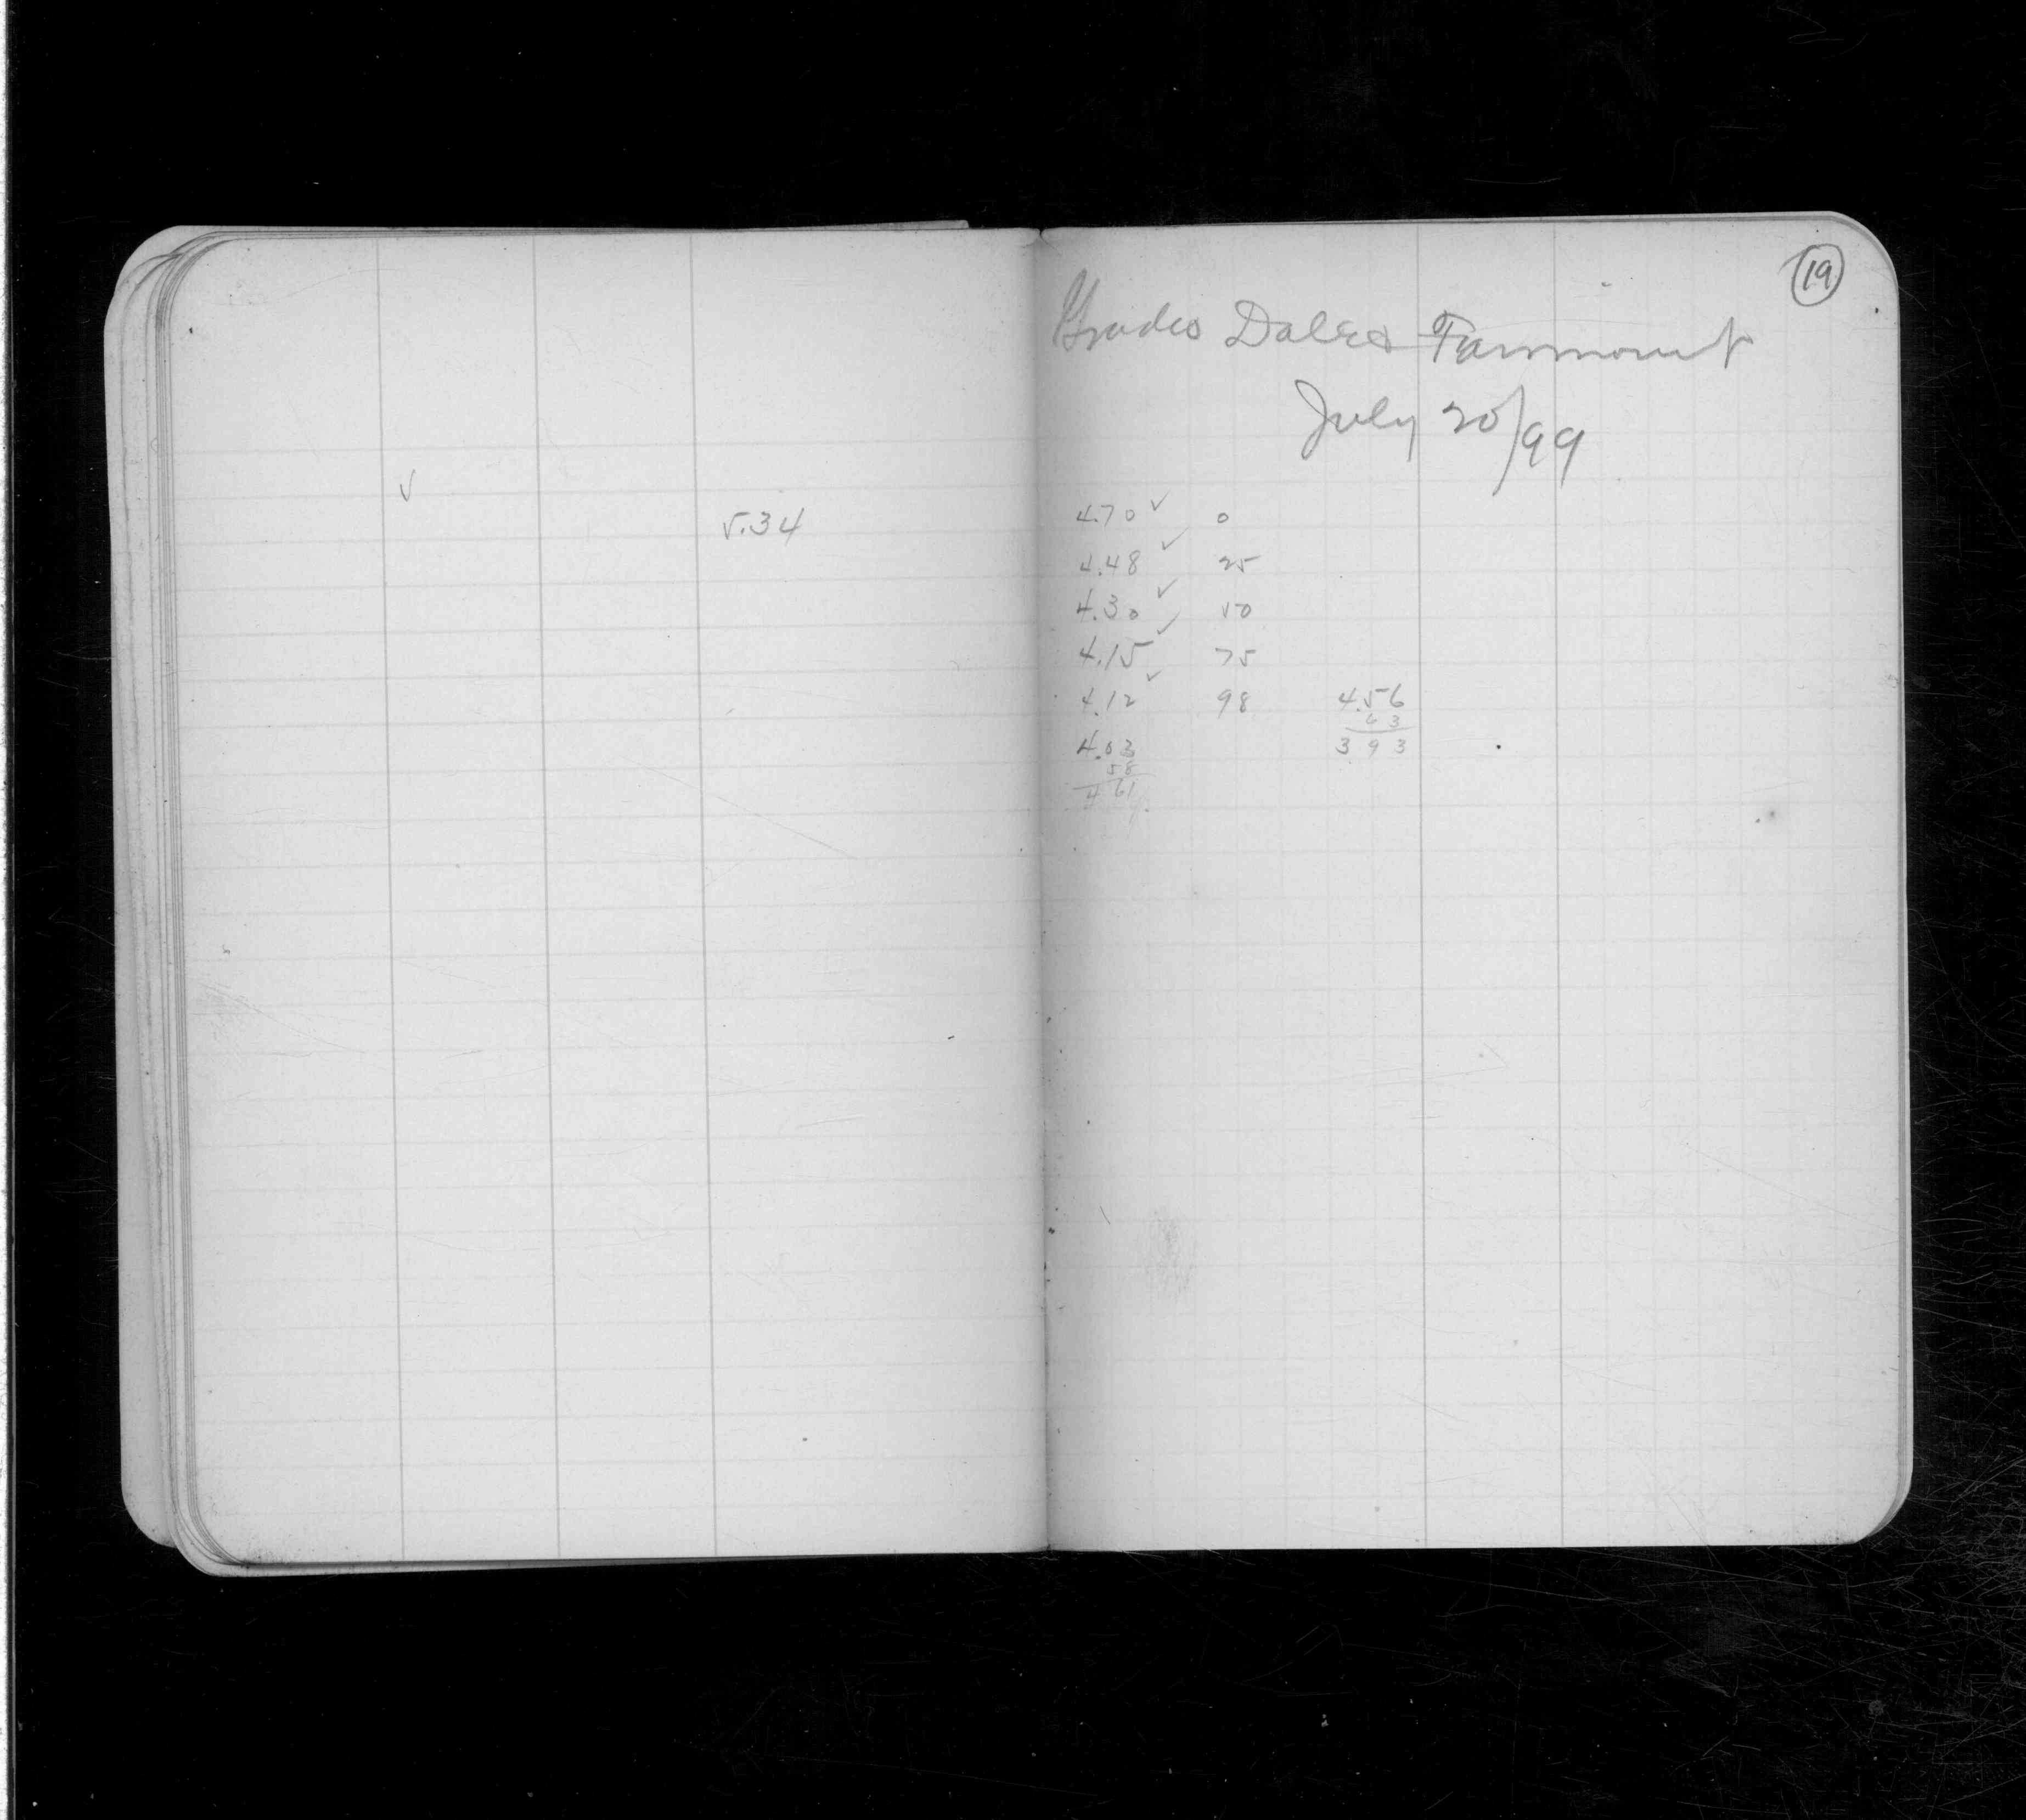 ✓
5.34
19
Grades Dale & Fairmount
July 20/99
4.70 ✓ 0
4.48 ✓ 25
4.30 ✓ 50
4.15 ✓ 75
4.12 ✓ 98 4.56
63
4.03 3 93
58
4 61